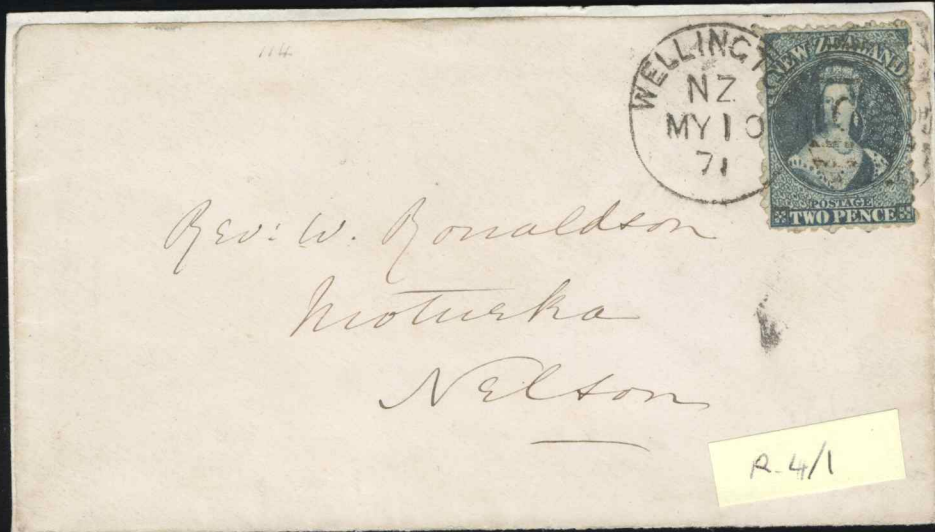 114
WELLINGT
NZ
MY 10
71
NEW ZEALAND
POSTAGE
TWO PENCE
Rev: W. Ronaldson
Motueka
Nelson
R-4/1